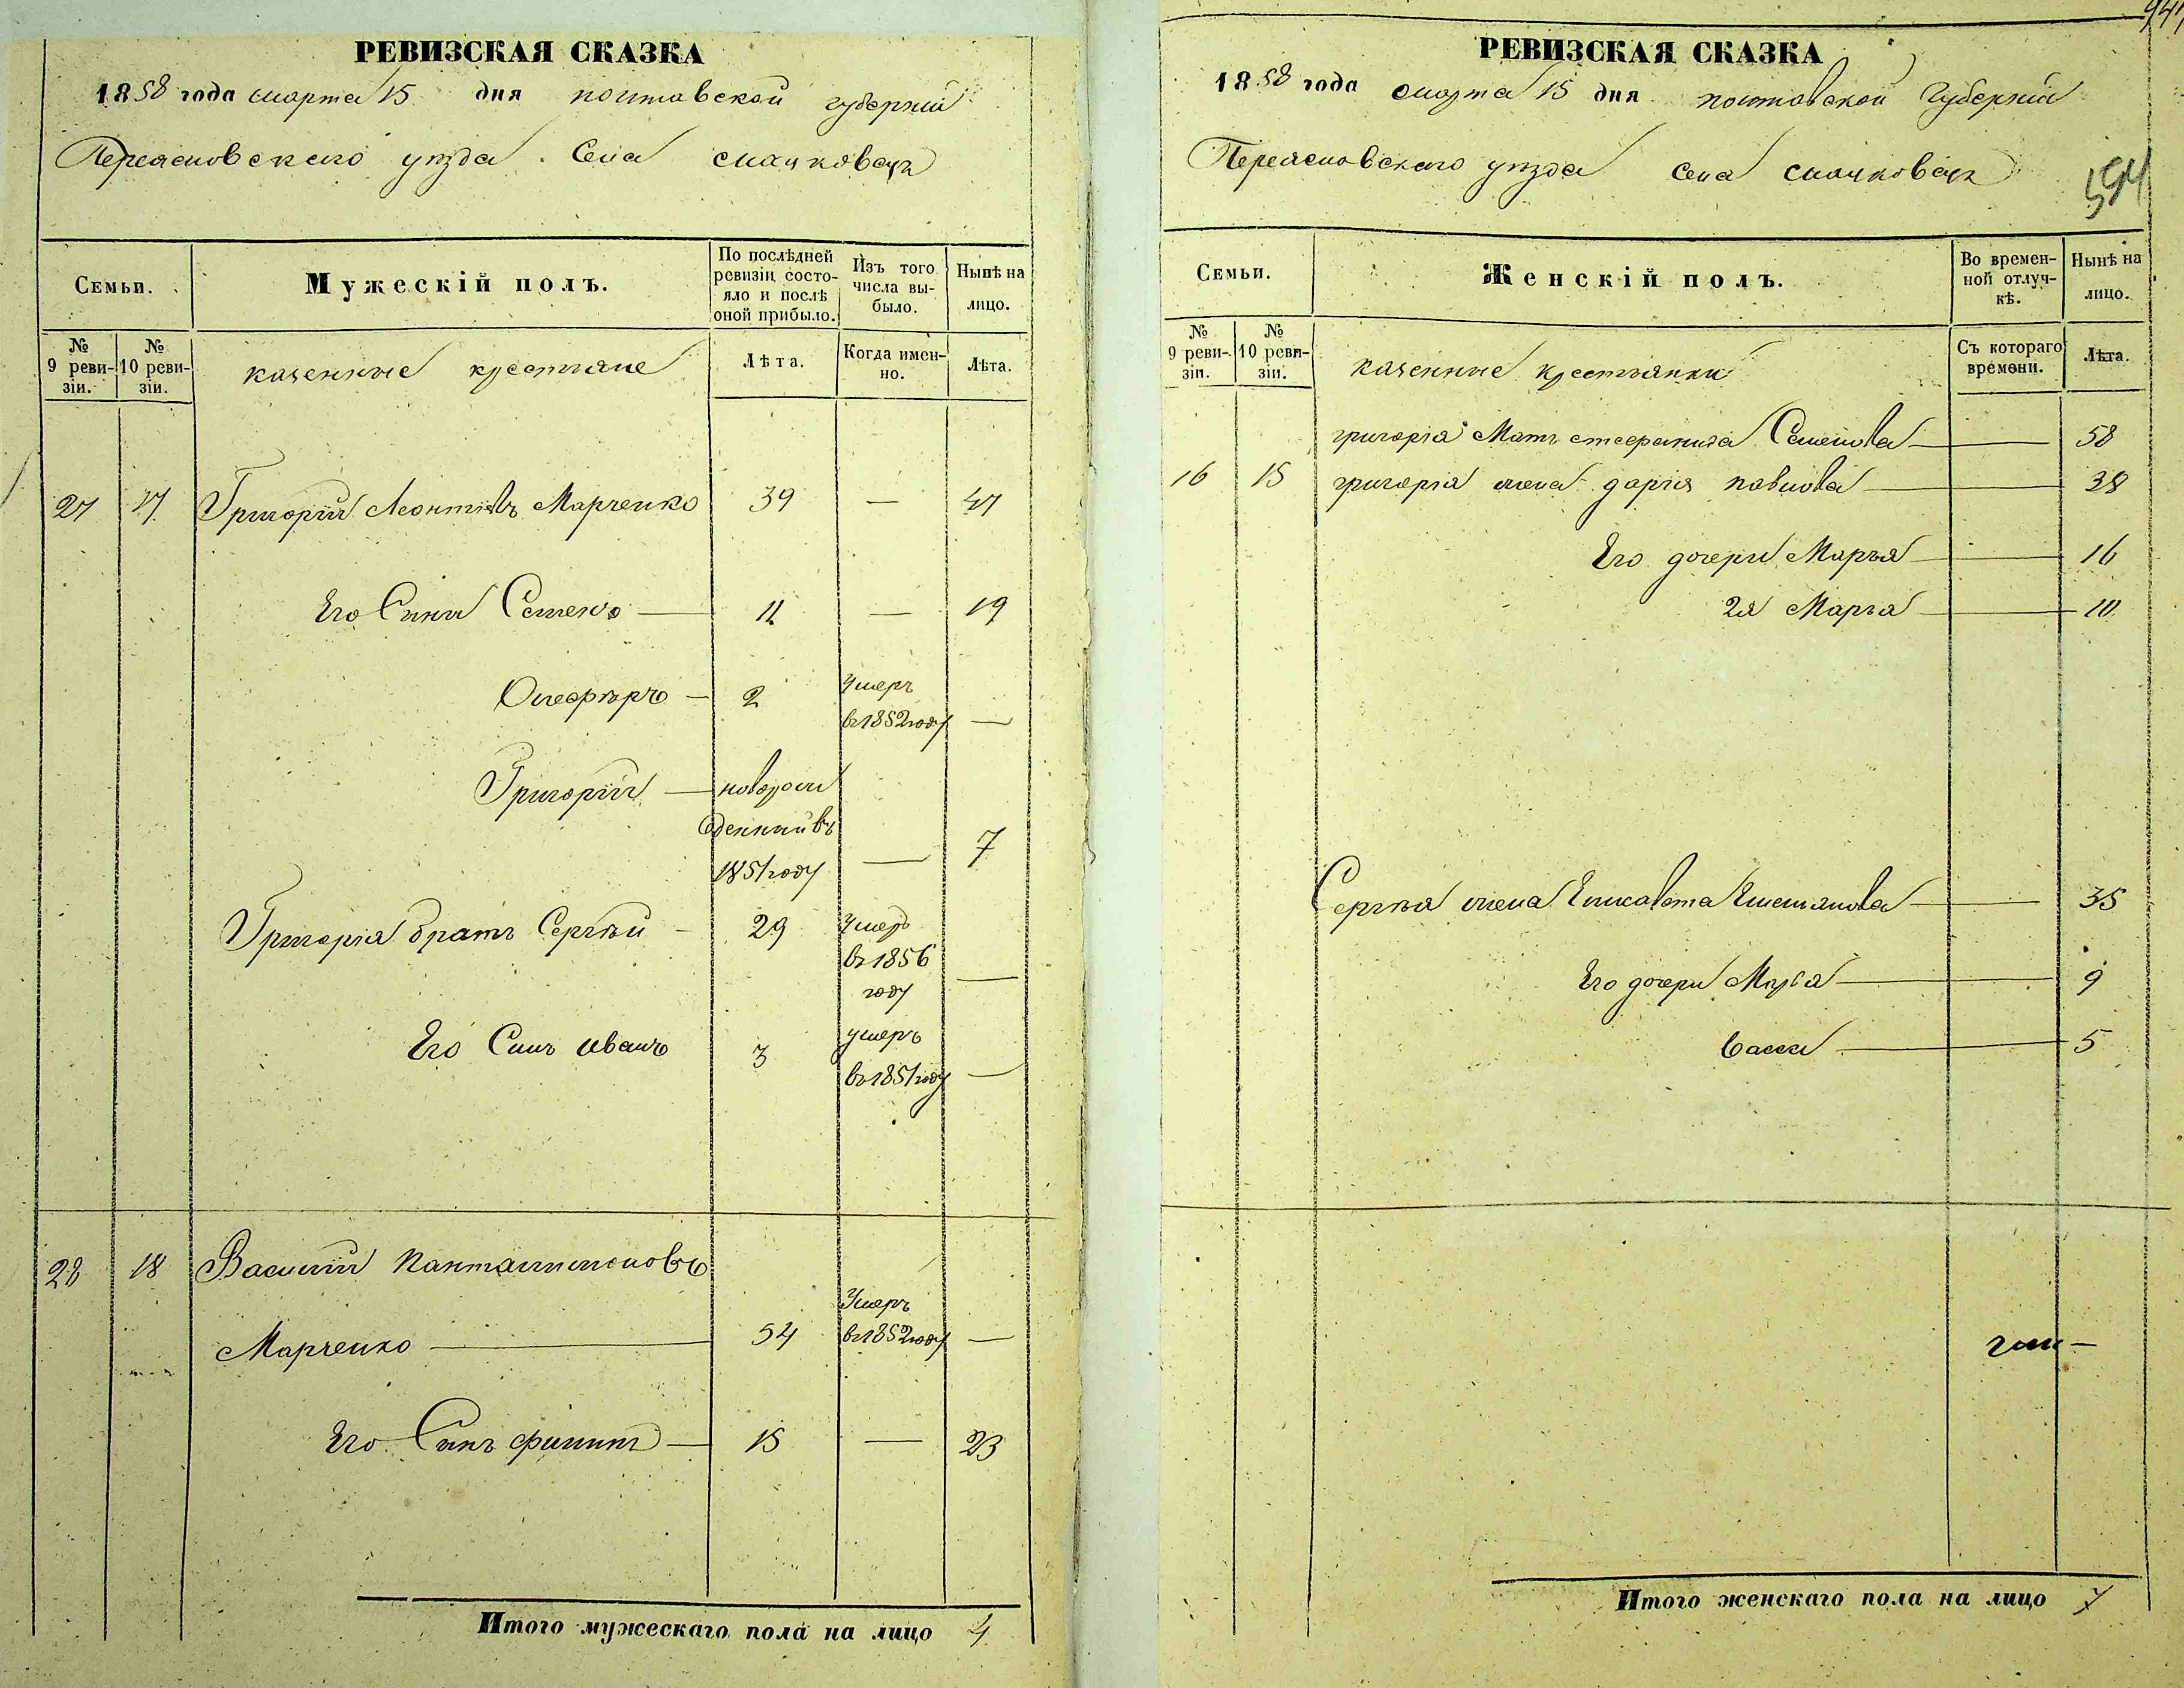 РЕВИЗСКАЯ СКАЗКА
1858 года марта 15 дня полтавской губерніи
Переясловского уѣзда Села смачковецъ
Семьи.
Мужескій полъ.
По послѣдней ревизіи состояло и послѣ оной прибыло.
Изъ того числа выбыло.
Нынѣ на лицо.
№ 9 ревизіи.
№ 10 ревизіи.
казенные крестьяне
Лѣта.
Когда именно.
Лѣта.
27 17 Григорій Леонтіевъ Марченко 39 — 47
Его Сыны Семенъ — 11 — 19
2 Умеръ
в 1852 году —
Григорій — новорож
денный въ
1851 году — 7
Григорія братъ Сергѣй — 29 Умеръ
въ 1856
году —
Его Сынъ иванъ 3 умеръ
въ 1851 году —
28 18 Василій Панталимоновъ
Марченко — 54 Умеръ
въ 1852 году —
Его Сынъ филипъ — 15 — 23
Итого мужескаго пола на лицо 4
941
РЕВИЗСКАЯ СКАЗКА
1858 года марта 15 дня полтавской Губерніи
Переясловского уѣзда села смачковецъ
594
Семьи.
Женскій полъ.
Во временной отлучкѣ.
Нынѣ на лицо.
№ 9 ревизіи.
№ 10 ревизіи.
казенные крестьянки
Съ котораго времени.
Лѣта.
григорія Мать стефанида Семенова — 58
16 15 григорія жена дарія павлова — 38
Его дочери Марья — 16
2я Марья — 10
Сергѣя жена Елисавета Емельянова — 35
Его дочери Марья — 9
Васса — 5
Итого женскаго пола на лицо 7